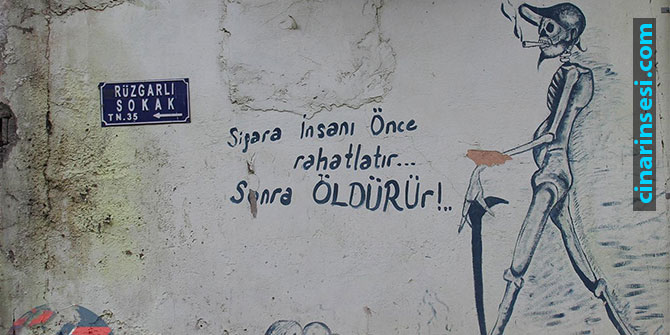 RÜZGARLI
SOKAK
TN.35
Sigara İnsanı Önce
rahatlatır...
Sonra ÖLDÜRÜr!..
cinarinsesi.com